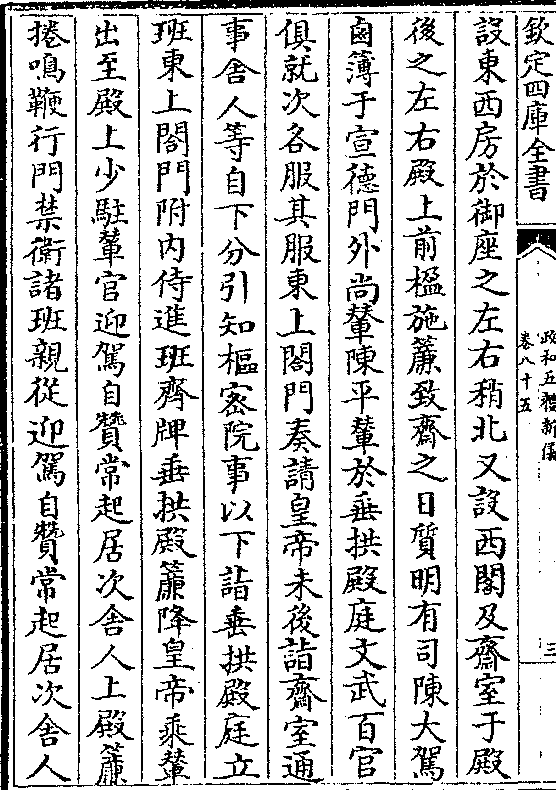 欽定四庫全書
政和五禮新儀
卷八十五
三
設東西房於御座之左右稍北又設西閣及齋室于殿
後之左右殿上前楹施簾致齋之日質明有司陳大駕
鹵簿于宣德門外尚輦陳平輦於垂拱殿庭文武百官
俱就次各服其服東上閤門奏請皇帝未後詣齋室通
事舍人等自下分引知樞密院事以下詣垂拱殿庭立
班東上閤門附内侍進班齊牌垂拱殿簾降皇帝乘輦
出至殿上少駐輦官迎駕自贊常起居次舍人上殿簾
捲鳴鞭行門禁衛諸班親從迎駕自贊常起居次舍人